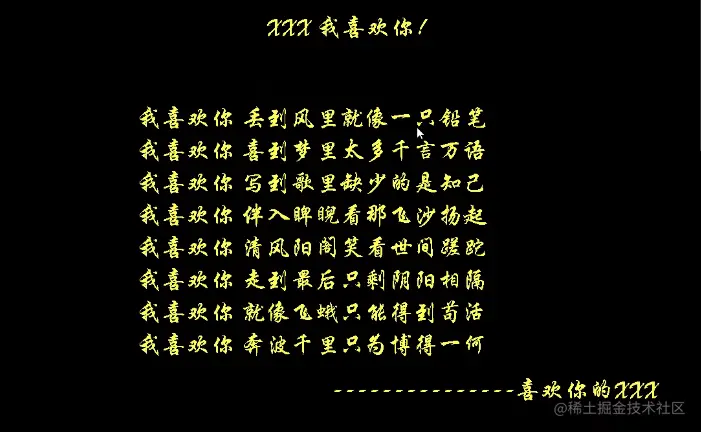 XXX 我喜欢你!
我喜欢你 丢到风里就像一只铅笔
我喜欢你 喜到梦里太多千言万语
我喜欢你 写到歌里缺少的是知己
我喜欢你 伴入睥睨看那飞沙扬起
我喜欢你 清风阳阁笑看世间蹉跎
我喜欢你 走到最后只剩阴阳相隔
我喜欢你 就像飞蛾只能得到苟活
我喜欢你 奔波千里只为博得一何
---------------喜欢你的XXX
@稀土掘金技术社区